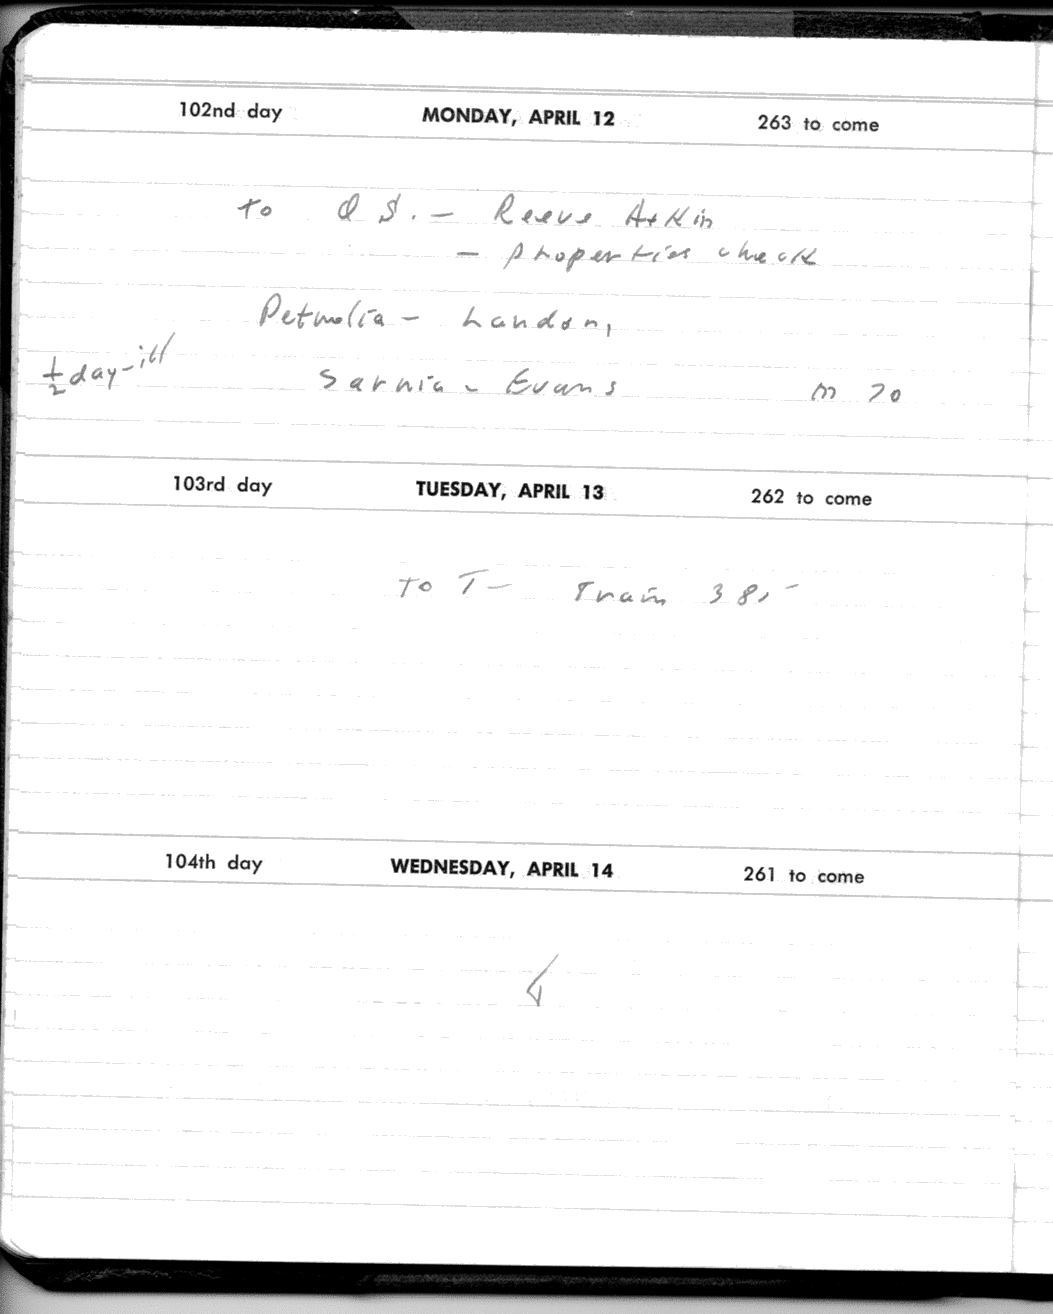 102nd day MONDAY, APRIL 12 263 to come
to O S. - Reeve Atkin
- properties check
Petrolia - London,
½ day - ill
Sarnia - Evans m 70
103rd day TUESDAY, APRIL 13 262 to come
To T - Train 38, -
104th day WEDNESDAY, APRIL 14 261 to come